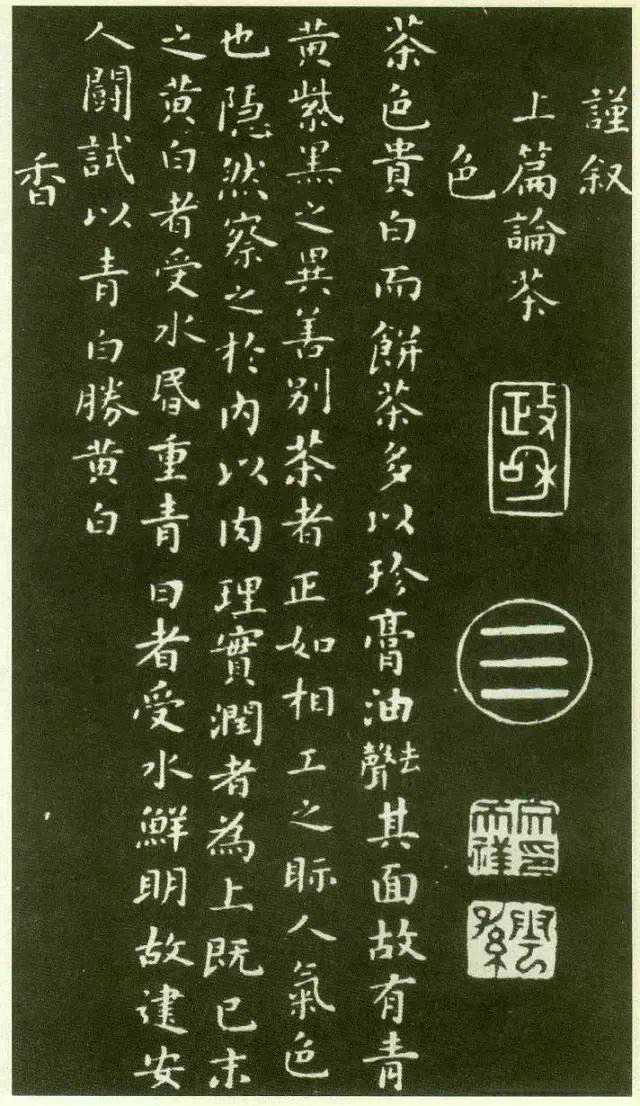 謹叙
上篇論茶
政和
色
茶色貴白而餅茶多以珍膏油去聲其面故有青
黃紫黑之異善别茶者正如相工之眎人氣色
也隱然察之於內以肉理實潤者為上既已末
之黃白者受水昬重青白者受水鮮明故建安
人鬭試以青白勝黃白
香